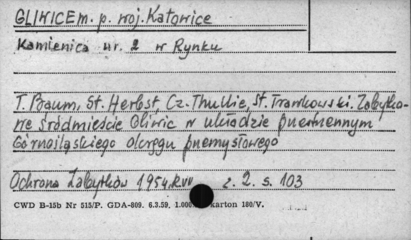 GLIWICE m. p. woj. Katowice
Kamienica nr. 2 w Rynku
T. Braum, St. Herbst, Cz. Thullie, St. Trawkowski. Zabytko-
we Śródmieście Gliwic w układzie przestrzennym
Górnośląskiego okręgu przemysłowego
Ochrona Zabytków 1954, R. VII z. 2. s. 103
CWD B-15b Nr 515/P. GDA-809. 6.3.59. 1.000 karton 180/V.